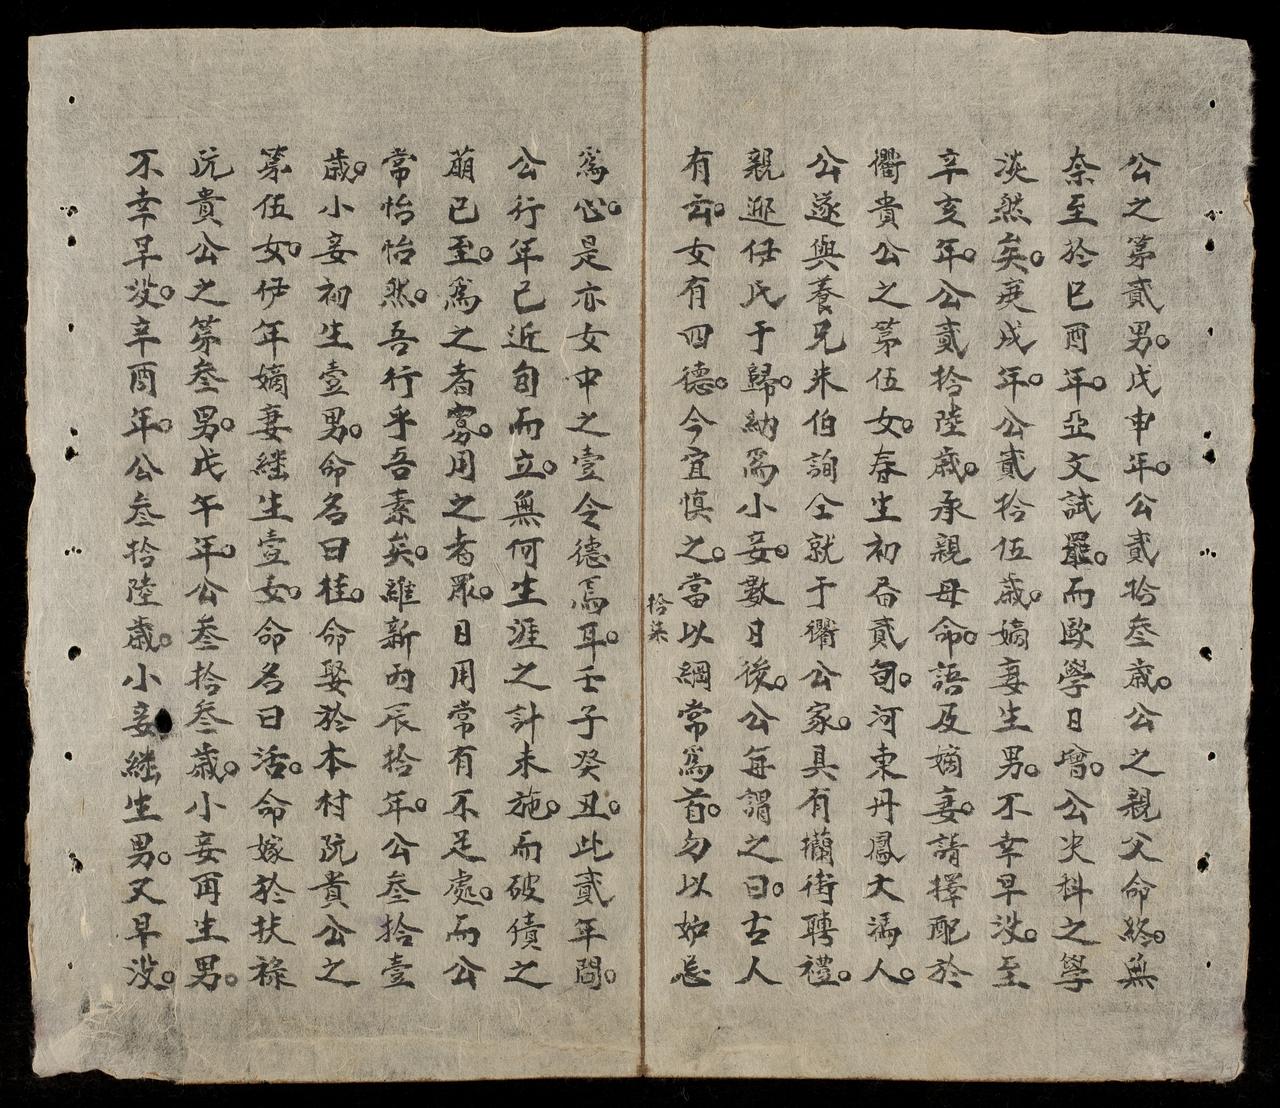 公之第貳男。戊申年。公貳拾叁歲。公之親父命終。無
奈至於己酉年。亞文試罷。而歐學日增。公决科之學
淡然矣。庚戌年。公貳拾伍歲。嫡妻生男。不幸早没。至
辛亥年。公貳拾陸歲。承親母命。語及嫡妻。請擇配於
衢貴公之第伍女。春生初屆貳旬。河東丹鳳大滿人。
公遂與養兄米伯詢仝就于衢公家。具有蘭銜聘禮。
親迎任氏于歸。納爲小妾。數日後。公每謂之曰。古人
有云。女有四德。今宜慎之。當以綱常爲首。勿以妬忌
拾柒
爲心。是亦女中之壹令德焉耳。壬子癸丑。此貳年間。
公行年已近旬而立。無何生涯之計未施。而破債之
萠已至。爲之者寡。用之者眾。日用常有不足處。而公
常怡怡然。吾行乎吾素矣。維新丙辰拾年。公叁拾壹
歲。小妾初生壹男。命名曰桂。命娶於本村阮貴公之
第伍女。仍年嫡妻繼生壹女。命名曰活。命嫁於扶祿
阮貴公之第叁男。戊午年。公叁拾叁歲。小妾再生男。
不幸早没。辛酉年。公叁拾陸歲。小妾繼生男。又早没。